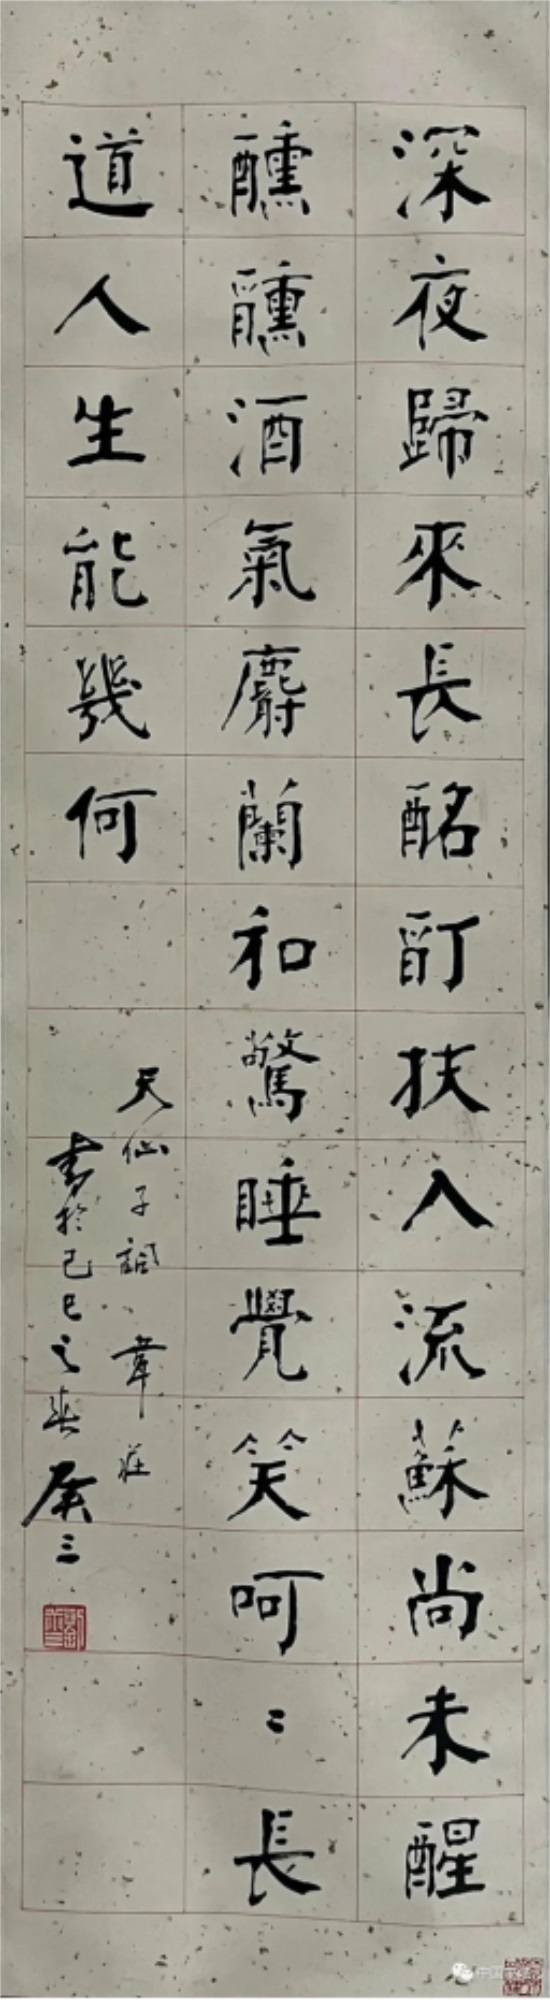 深夜歸來長酩酊扶入流蘇尚未醒
醺醺酒氣麝蘭和驚睡覺笑呵〻長
道人生能幾何
天仙子詞 韋莊
書於己巳之春 康三